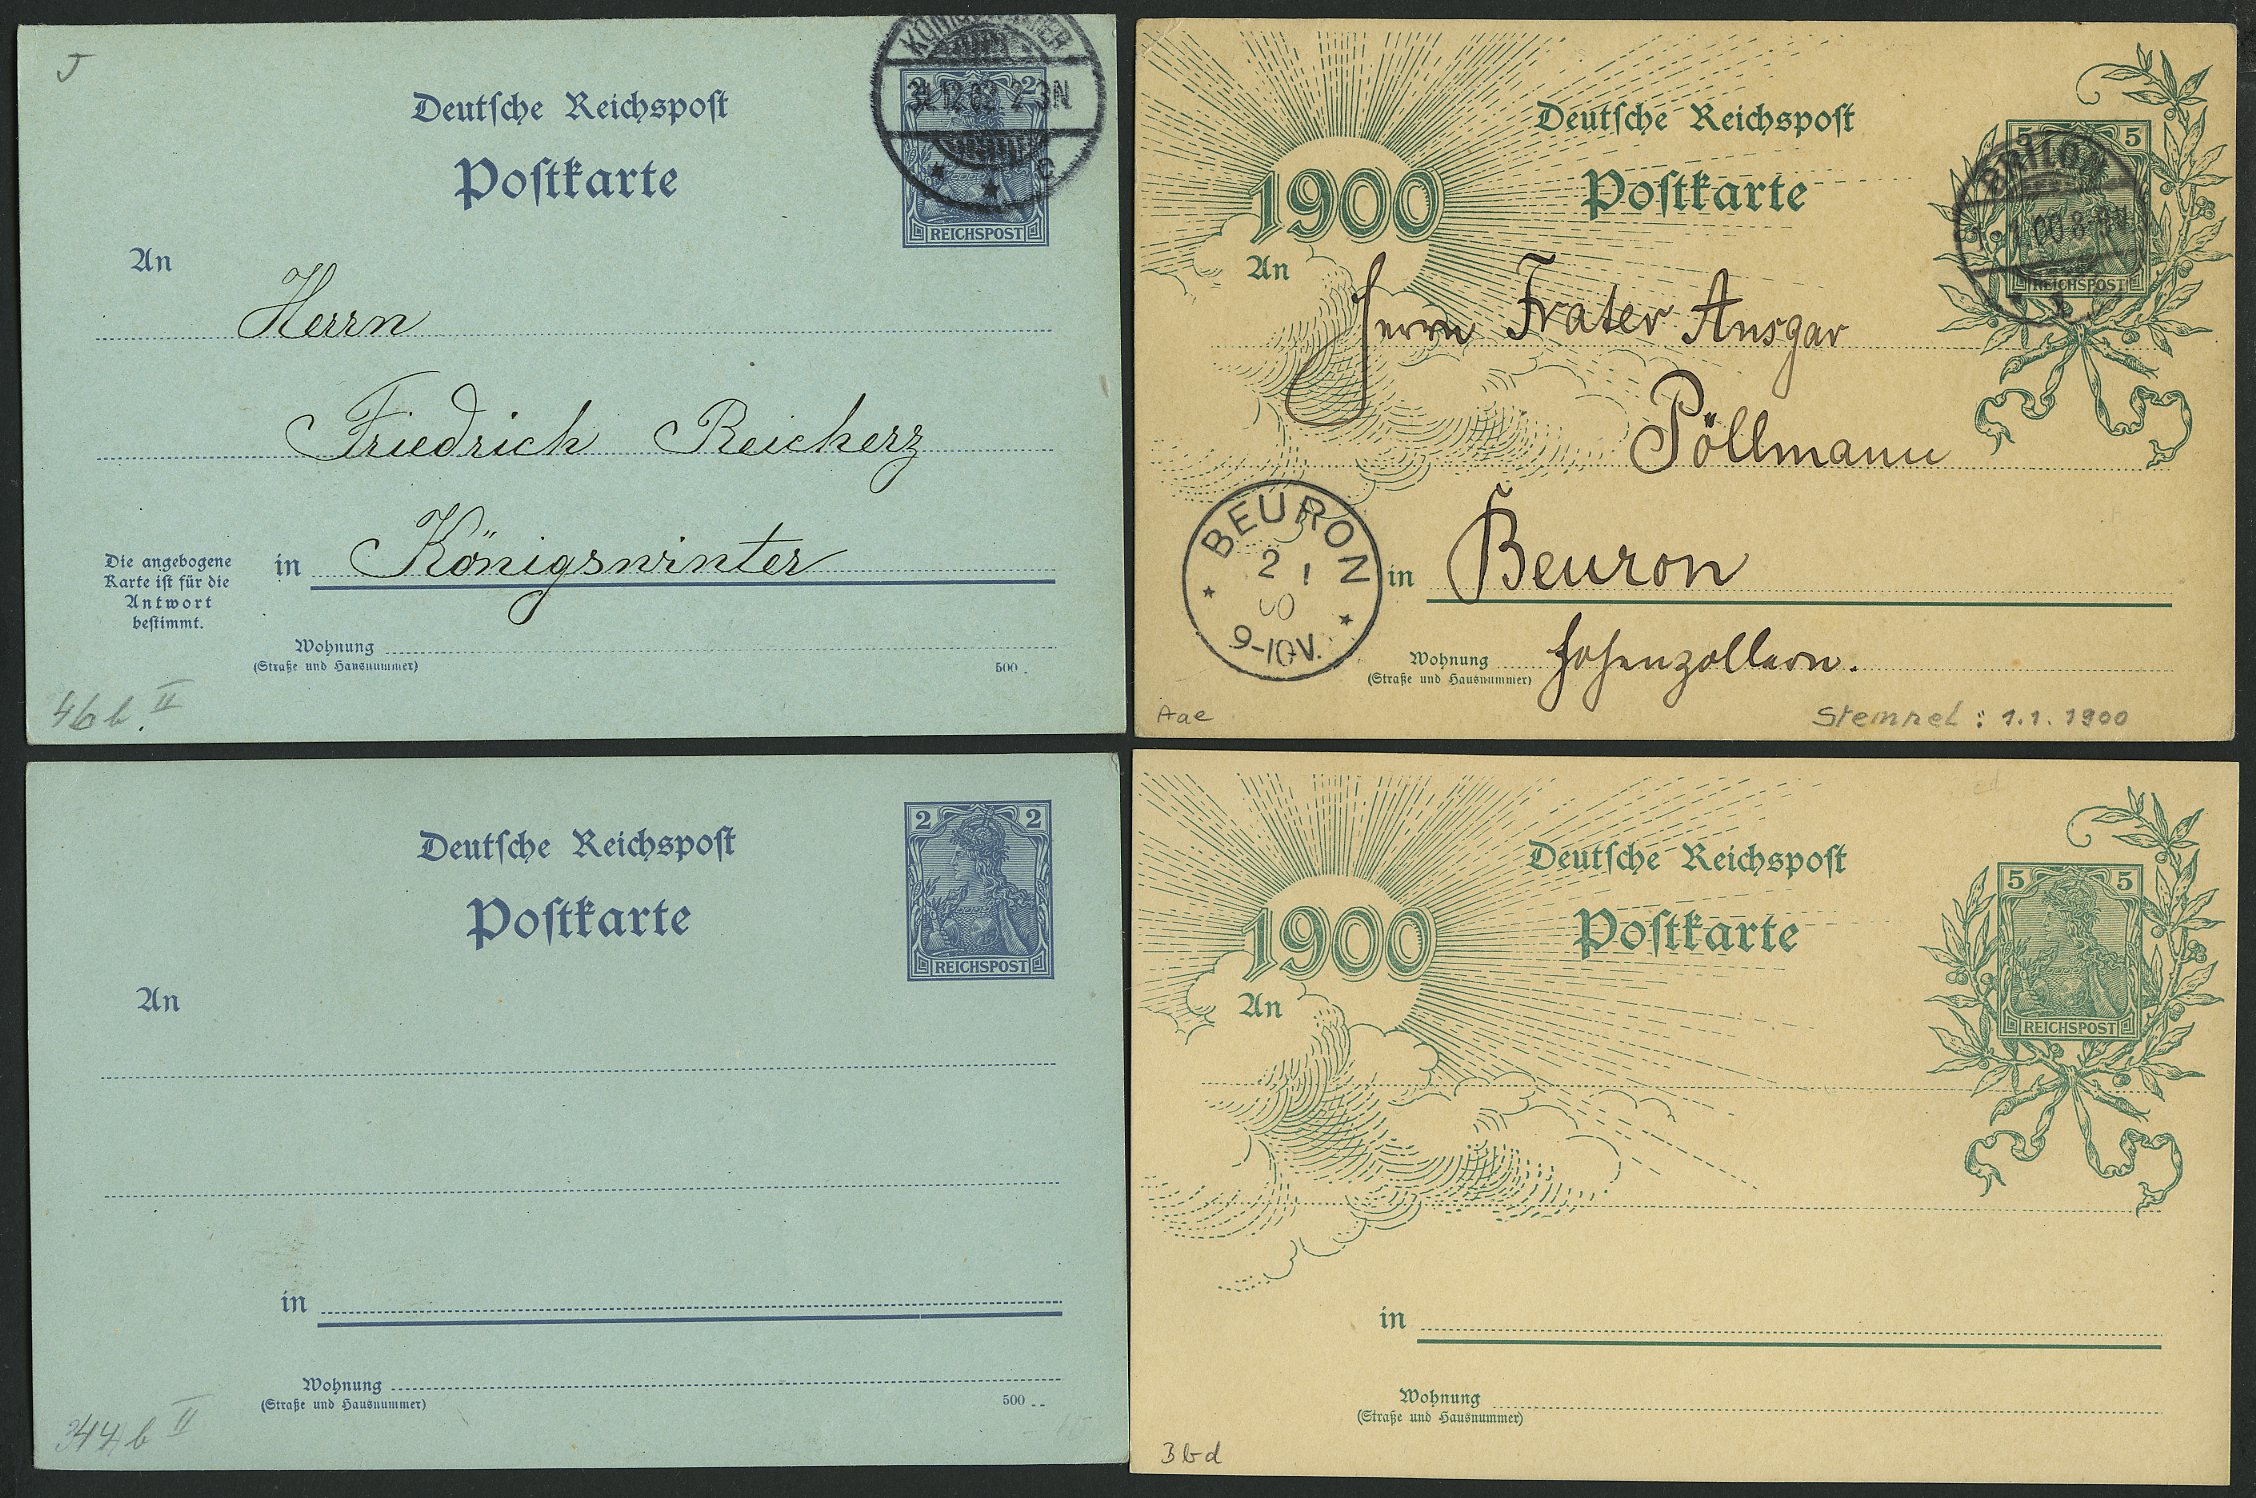 J
Deutsche Reichspost
Postkarte
2 2
31.12.03 2-3N
C
REICHSPOST
An
Herrn
Friedrich Reicherz
in Königswinter
Die angebogene
Karte ist für die
Antwort
bestimmt.
Wohnung
(Straße und Hausnummer)
500
46b. II
Deutsche Reichspost
Postkarte
1900
5 5
BRILON
REICHSPOST
An
Herrn Frater Ansgar
Pöllmann
BEURON
2 1
00
9-10V.
in Beuron
Wohnung Hohenzollern.
(Straße und Hausnummer)
Aae
Stempel: 1.1.1900
Deutsche Reichspost
Postkarte
2 2
REICHSPOST
An
in
Wohnung
(Straße und Hausnummer)
500
44b II
Deutsche Reichspost
Postkarte
1900
5 5
REICHSPOST
An
in
Wohnung
(Straße und Hausnummer)
3bd